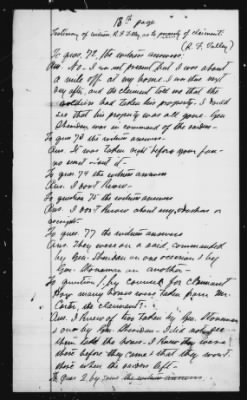 13th page
Testimony of witness R. F. Talley, as to property of claimant.
(R. F. Talley)
To ques. 72, the witness answers,
Ans. No. I was not present, but I was about
a mile off at my home. I was there next
day after, and the claimant told me that the
soldiers had taken his property. I could
see that his property was all gone. Gen
Sheridan was in command of the
To ques 73 the witness answers
Ans. It was taken right before your face
no went about it —
To ques 74 the witness answers
Ans. I don't know —
To question 75 the witness answers
Ans. I don't know about any vouchers or
receipt —
To ques. 77 the witness answers
Ans. They were on a raid, commanded
by Gen. Sheridan on one occasion & by
Gen. Stoneman on another —
To question 1 by counsel for claimant
How many horses were taken from Mr.
Carter, the claimant? —
Ans. I knew of two taken by Gen. Stoneman
& one by Gen. Sheridan — I did not see
them take the horses. I know they were
there before they came & that they wasn't
there when the raiders left —
To ques 2 by same the witness answers